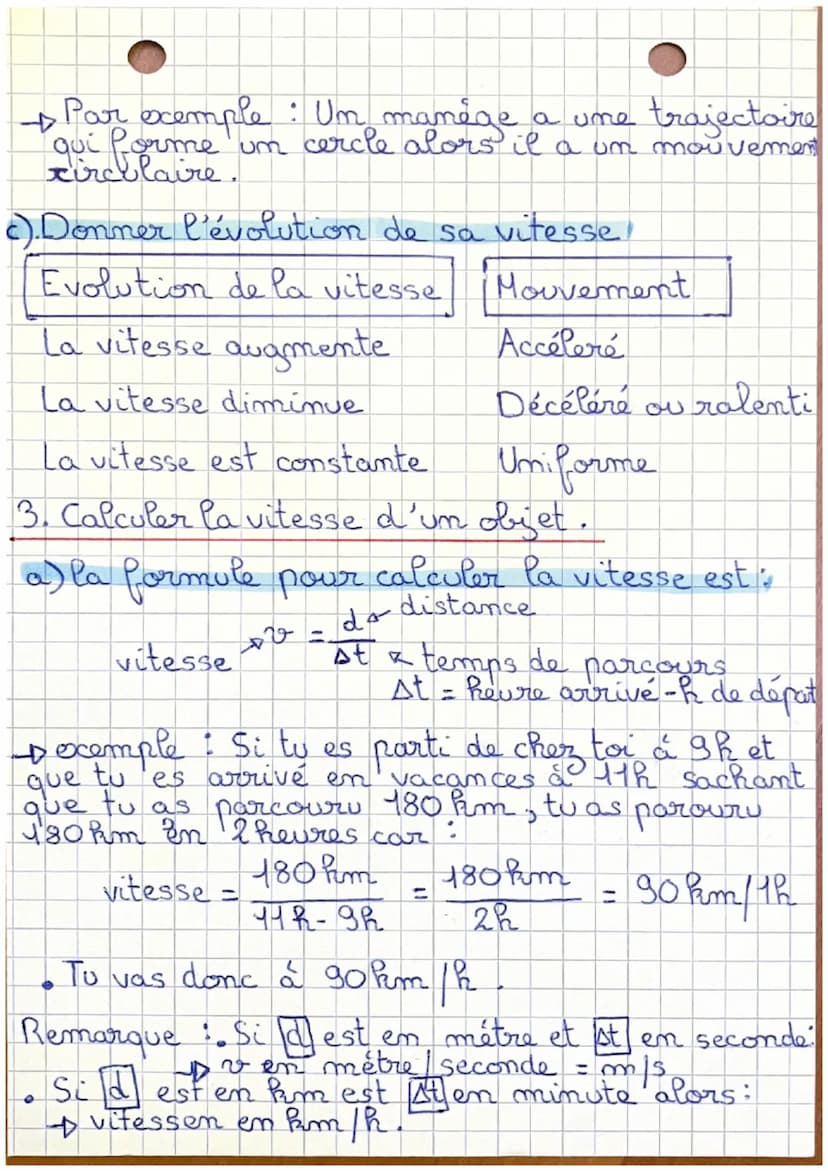 → Par exemple : Un manége a une trajectoire
qui forme un cercle alors il a un mouvement
circulaire.
c). Donner l'évolution de sa vitesse
Evolution de la vitesse Mouvement
La vitesse augmente Accéleré
La vitesse diminue Décéléré ou ralenti
La vitesse est constante Uniforme
3. Calculer la vitesse d'un objet.
a) la formule pour calculer la vitesse est :
vitesse → v = d/Δt ← distance
← temps de parcours
Δt = heure arrivé - h de dépat
→ exemple : Si tu es parti de chez toi á 9h et
que tu es arrivé en vacances à 11h sachant
que tu as parcouru 180 km, tu as parouru
180 km en 2 heures car :
vitesse = 180 km/11h - 9h = 180 km/2h = 90 km/1h
• Tu vas donc á 90 km/h.
Remarque : • Si d est en métre et Δt en seconde:
→ v en métre/seconde = m/s
• Si d est en km est Δt en minute alors:
→ vitessen en km/h.